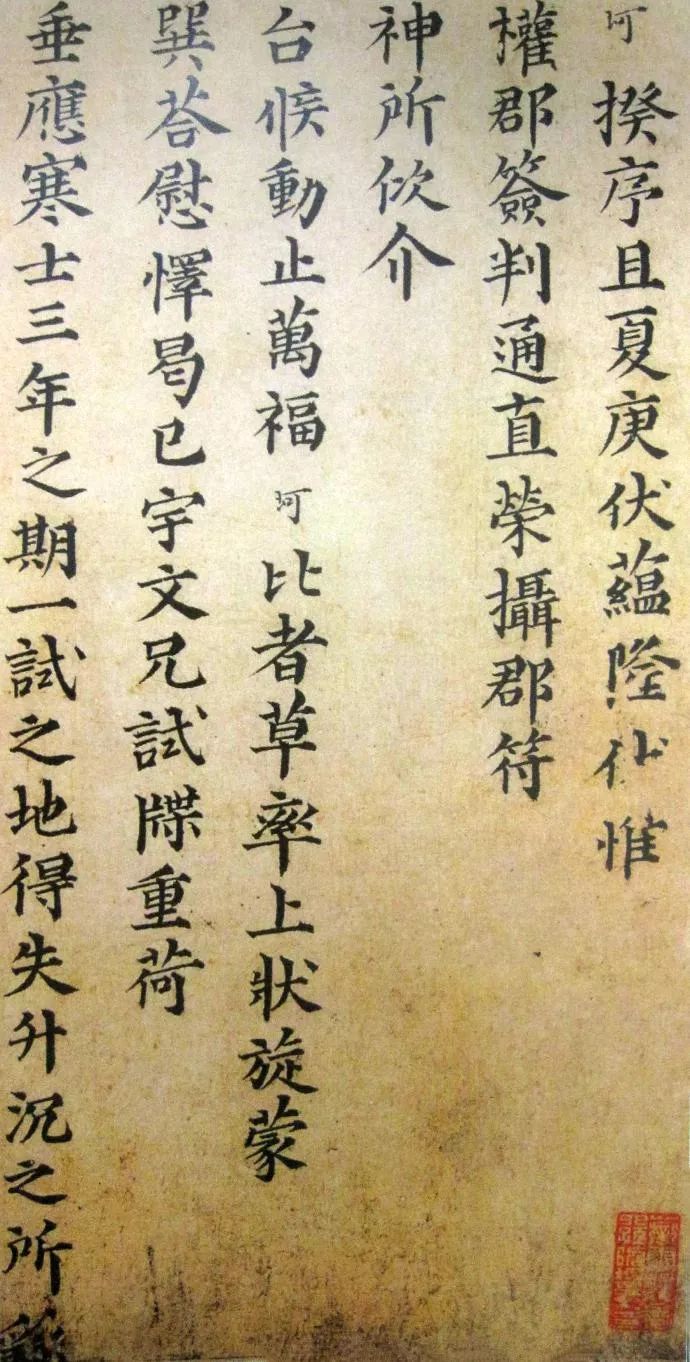 坷 揆序且夏庚伏蘊隆伏惟
權郡簽判通直榮攝郡符
神所佽介
台候動止萬福 坷 比者草率上狀旋蒙
巽荅慰懌曷已宇文兄試牒重荷
垂應寒士三年之期一試之地得失升沉之所